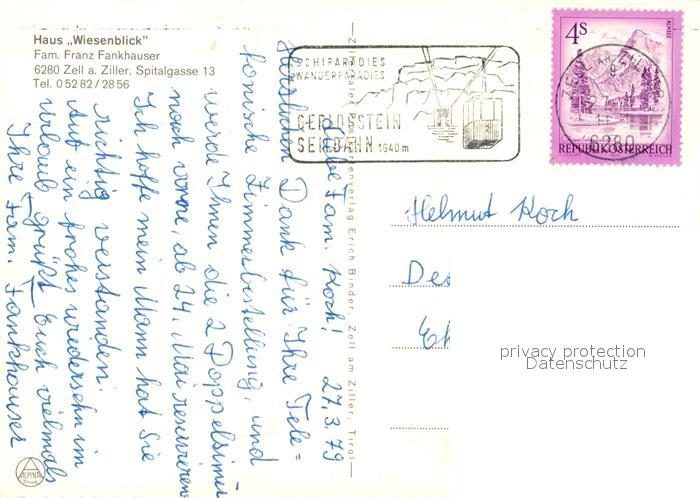 Haus „Wiesenblick"
Fam. Franz Fankhauser
6280 Zell a. Ziller, Spitalgasse 13
Tel. 0 52 82 / 28 56
SCHIPARADIES
WANDERPARADIES
GERLOSSTEIN
SEILBAHN 1640 m
4S
ALMSEE
REPUBLIK ÖSTERREICH
6280
27.3.79
Liebe Fam. Koch!
Herzlichen Dank für Ihre Tele=
fonische Zimmerbestellung, und
werde Ihnen die 2 Doppelzimmer
nach vorne, ab 24. Mai reservieren
Ich hoffe mein Mann hat Sie
richtig verstanden.
Auf ein frohes wiedersehn im
Urlaub grüßt Euch vielmals
Ihre Fam. Fankhauser
Erich Binder, Zell am Ziller, Tirol
Helmut Koch
De
Eh
privacy protection
Datenschutz
ALPINA